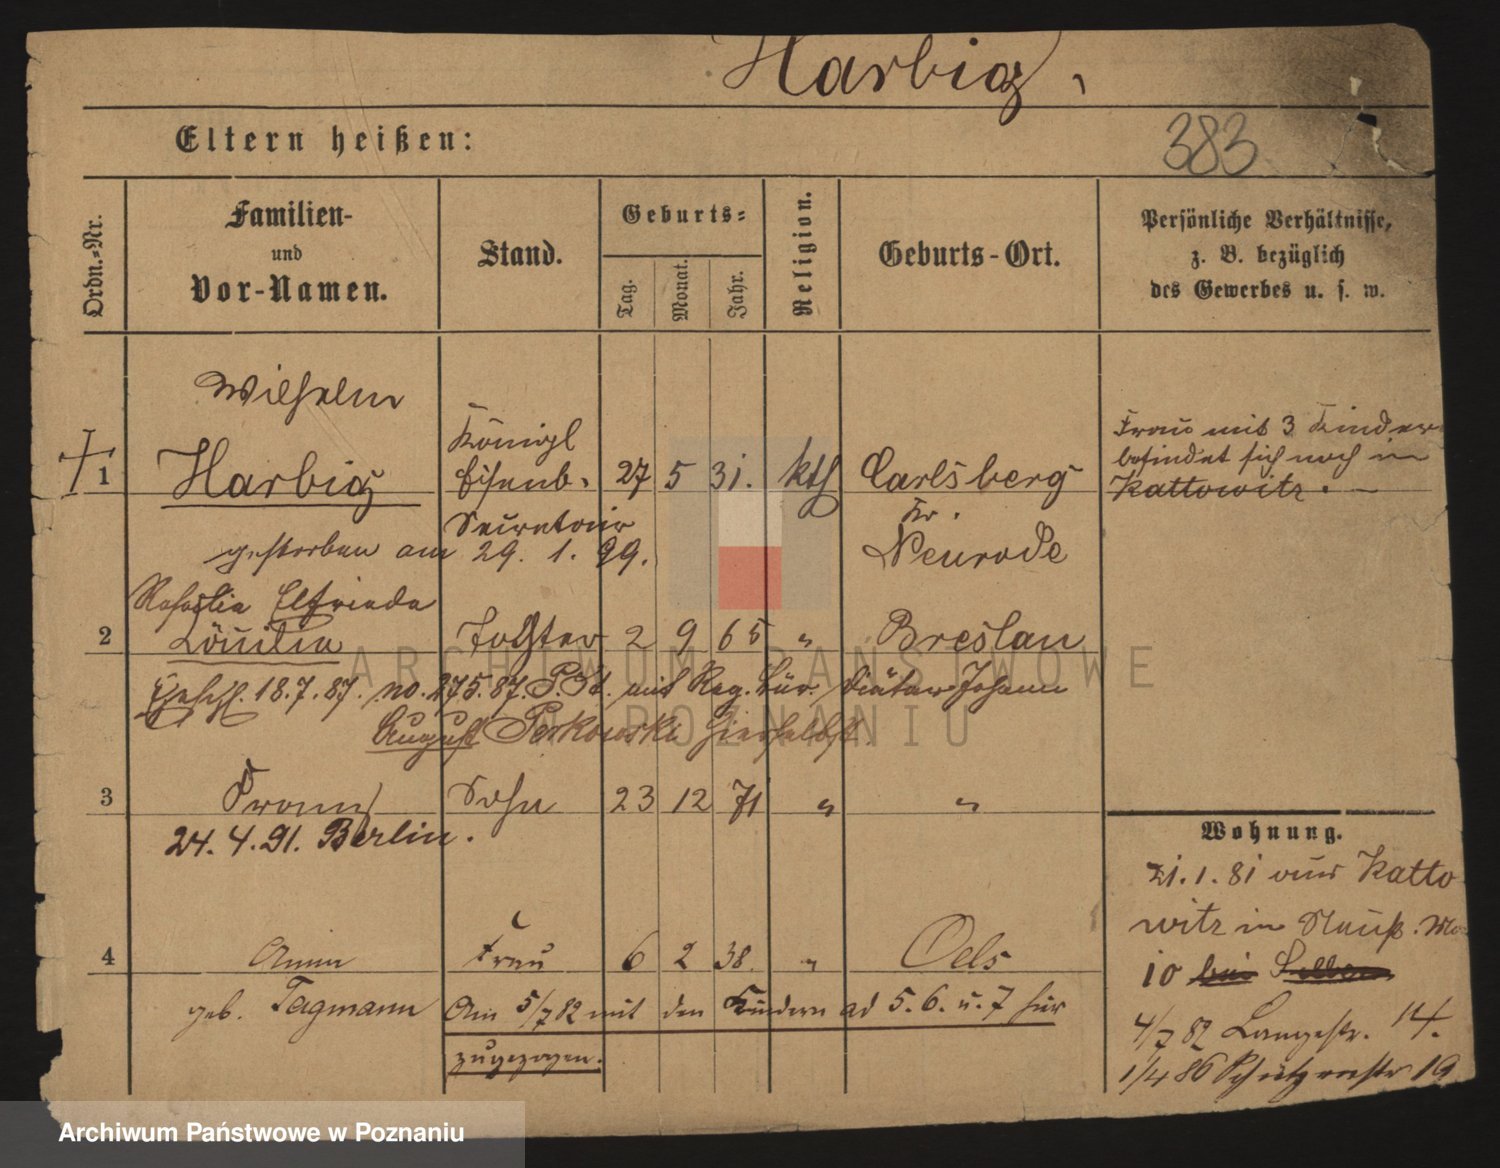 Harbig,
383
Eltern heißen:
Ordn.-Nr.
Familien-
und
Vor-Namen.
Stand.
Geburts-
Tag.
Monat.
Jahr.
Religion.
Geburts-Ort.
Persönliche Verhältnisse,
z. B. bezüglich
des Gewerbes u. s. w.
1
Wilhelm
Harbig
Königl
Eisenb.
Secretair
27 5 31. kth
Carlsberg
Kr.
Neurode
gestorben am 29. 1. 99.
Frau mit 3 Kinder
befindet sich noch in
Kattowitz. —
2
Elfriede
Tochter 2 9 65 " Breslau
Eheschl. 18.7.87. no. 275.87. P.St. mit Reg. Bür. Diätar Johann
August Perkowski hierselbst.
3
Franz Sohn 23 12 71 " "
24. 4. 91. Berlin.
4
Frau 6 2 38. " Oels
geb. Tagmann
Am 5/7 82 mit den Kindern ad 5. 6. u. 7 hier
zugezogen.
Wohnung.
21. 1. 81 aus Katto
witz in
10 bei
4/7 82 Langestr. 14.
1/4 86 Schützenstr 19
ARCHIWUM PAŃSTWOWE
W POZNANIU
Archiwum Państwowe w Poznaniu